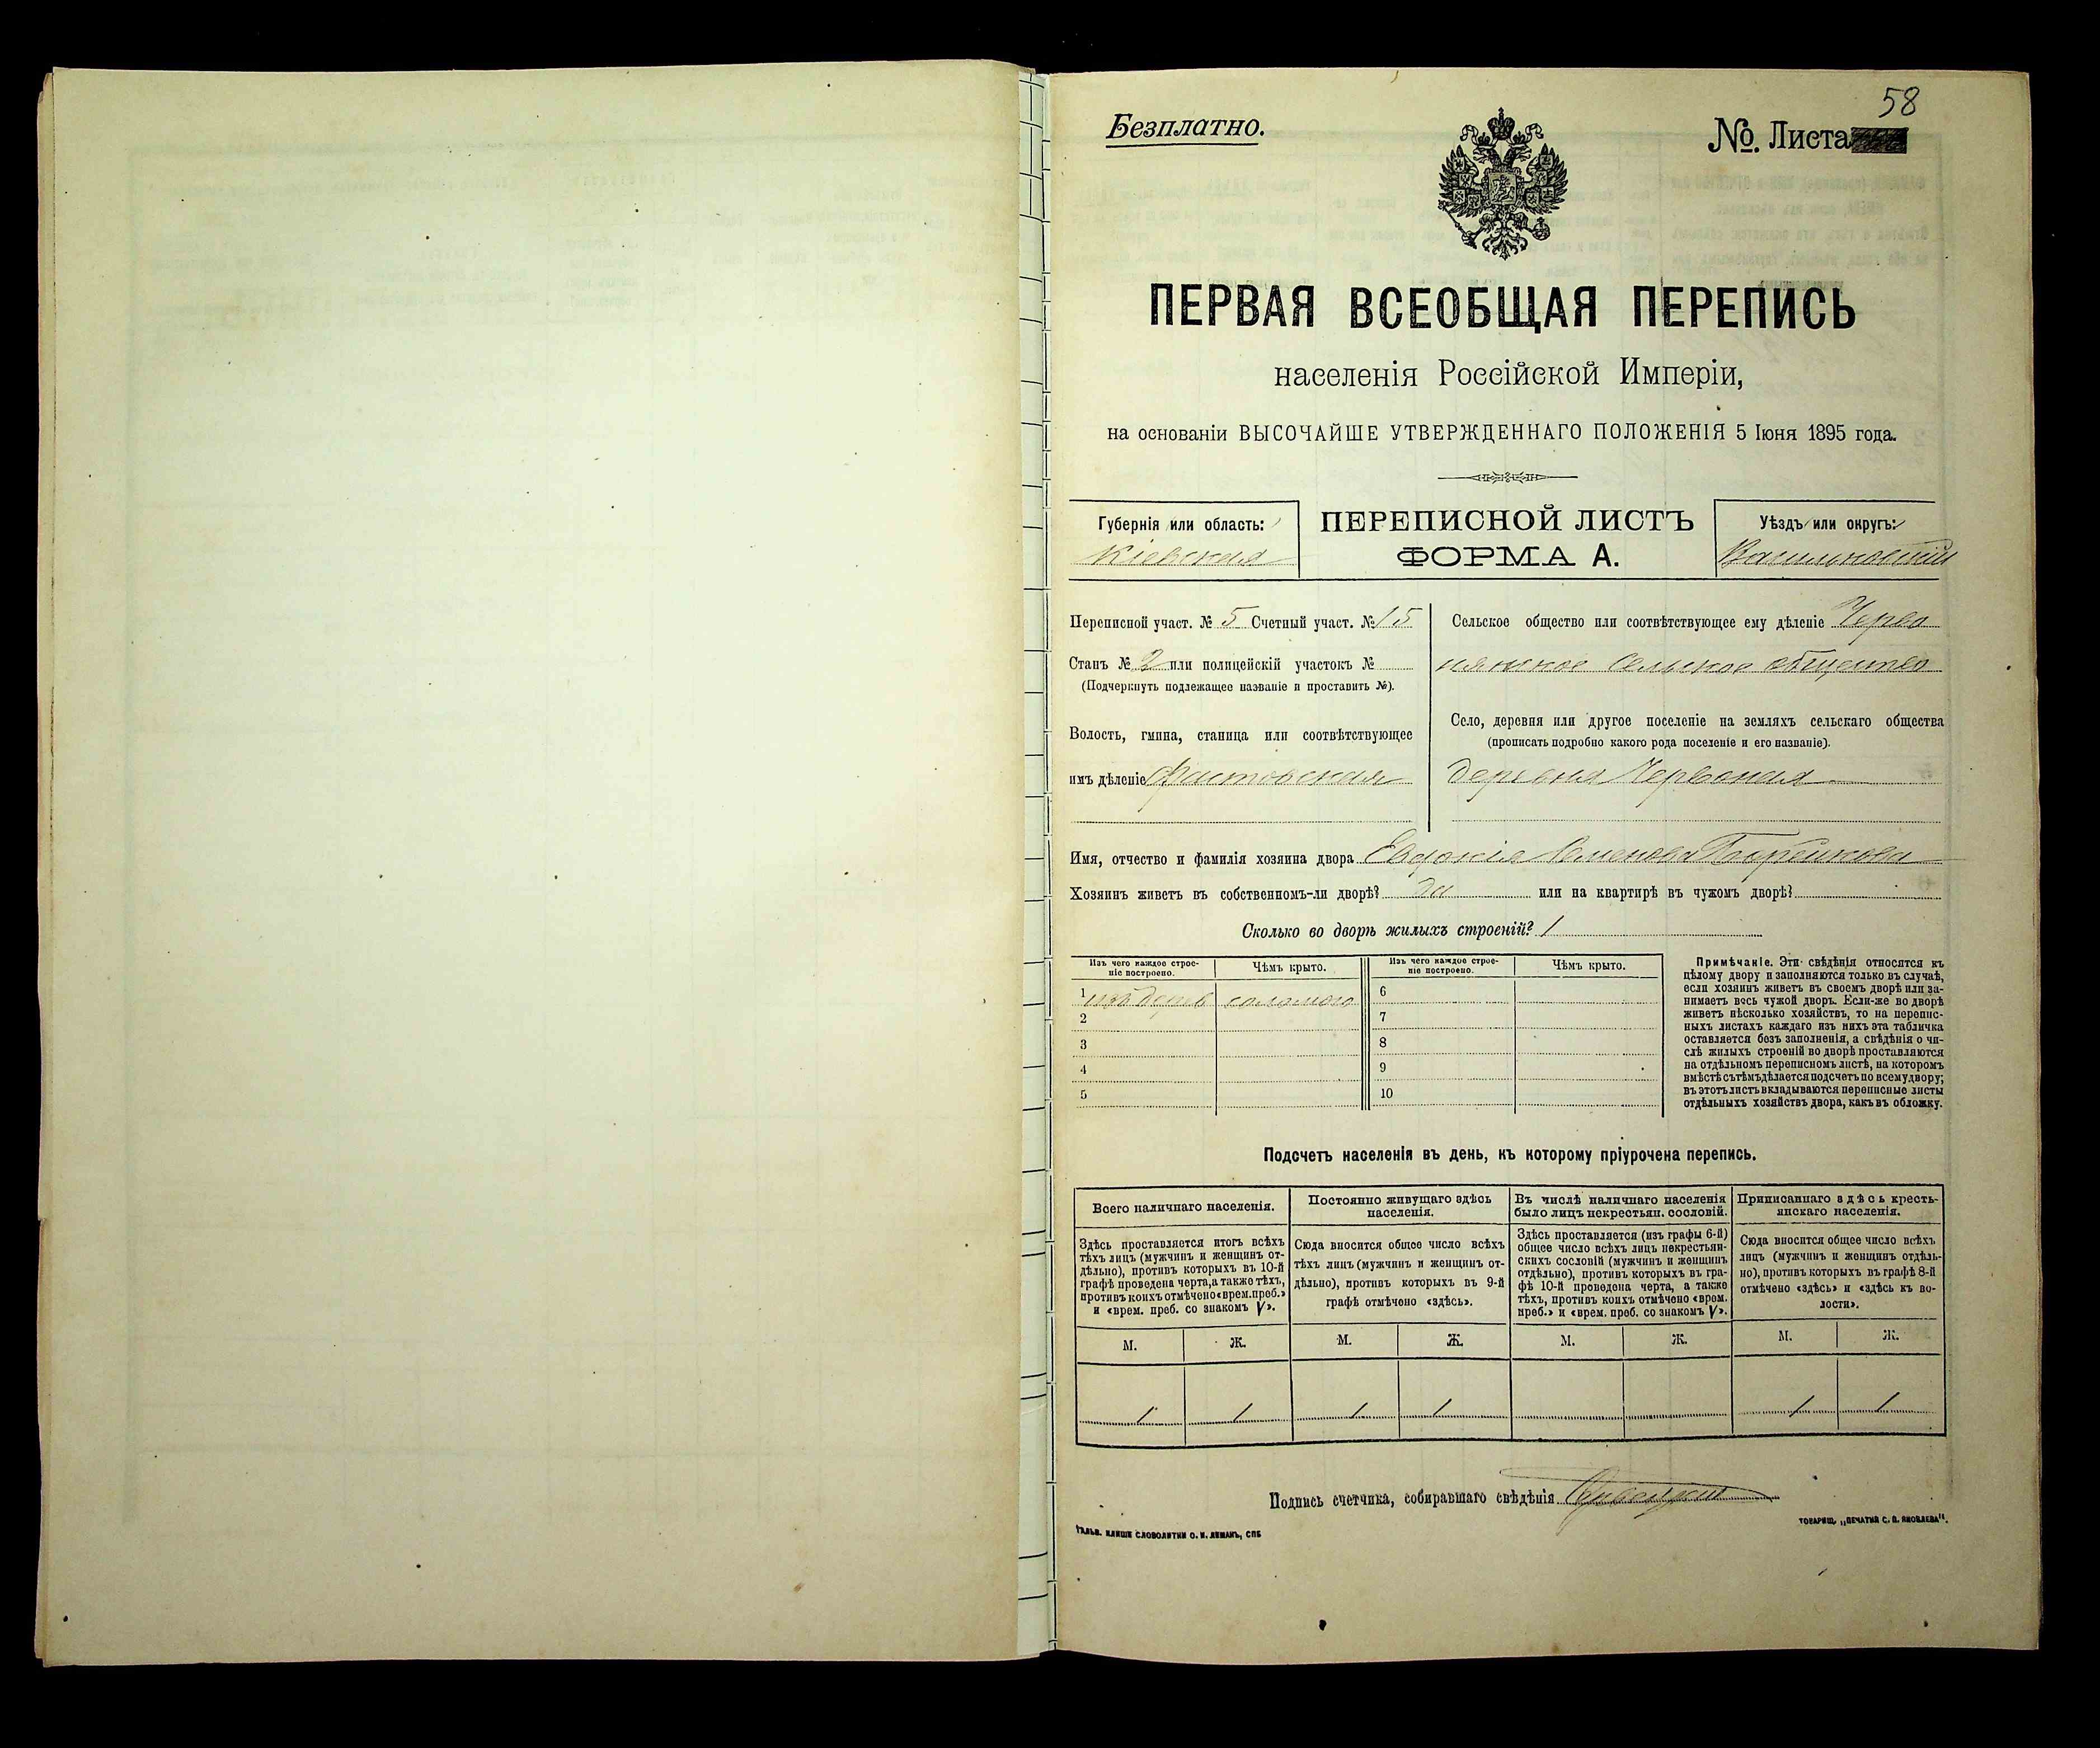 58
Безплатно.
№. Листа
ПЕРВАЯ ВСЕОБЩАЯ ПЕРЕПИСЬ
населенія Россійской Имперіи,
на основаніи ВЫСОЧАЙШЕ УТВЕРЖДЕННАГО ПОЛОЖЕНІЯ 5 Іюня 1895 года.
Губернія или область:
Кіевская
ПЕРЕПИСНОЙ ЛИСТЪ
ФОРМА А.
Уѣздъ или округъ:
Васильковскій
Переписной участ. № 5 Счетный участ. № 15
Станъ № 2 или полицейскій участокъ №
(Подчеркнуть подлежащее названіе и проставить №).
Волость, гмина, станица или соотвѣтствующее
имъ дѣленіе Фастовская
Сельское общество или соотвѣтствующее ему дѣленіе Черво
нянское сельское общество
Село, деревня или другое поселеніе на земляхъ сельскаго общества
(прописать подробно какого рода поселеніе и его названіе).
деревня Червоная
Имя, отчество и фамилія хозяина двора Евдокія Семенова
Хозяинъ живетъ въ собственномъ-ли дворѣ? да или на квартирѣ въ чужомъ дворѣ?
Сколько во дворѣ жилыхъ строеній? 1
Изъ чего каждое строе-
ніе построено.
Чѣмъ крыто.
Изъ чего каждое строе-
ніе построено.
Чѣмъ крыто.
1 изъ дерев соломою
2
3
4
5
6
7
8
9
10
Примѣчаніе. Эти свѣдѣнія относятся къ
цѣлому двору и заполняются только въ случаѣ,
если хозяинъ живетъ въ своемъ дворѣ или за-
нимаетъ весь чужой дворъ. Если-же во дворѣ
живетъ нѣсколько хозяйствъ, то на перепис-
ныхъ листахъ каждаго изъ нихъ эта табличка
оставляется безъ заполненія, а свѣдѣнія о чи-
слѣ жилыхъ строеній во дворѣ проставляются
на отдѣльномъ переписномъ листѣ, на которомъ
вмѣстѣ съ тѣмъ дѣлается подсчетъ по всему двору;
въ этотъ листъ вкладываются переписные листы
отдѣльныхъ хозяйствъ двора, какъ въ обложку.
Подсчетъ населенія въ день, къ которому пріурочена перепись.
Всего наличнаго населенія.
Здѣсь проставляется итогъ всѣхъ
тѣхъ лицъ (мужчинъ и женщинъ от-
дѣльно), противъ которыхъ въ 10-й
графѣ проведена черта, а также тѣхъ,
противъ коихъ отмѣчено «врем. преб.»
и «врем. преб. со знакомъ V».
М. Ж.
1 1
Постоянно живущаго здѣсь
населенія.
Сюда вносится общее число всѣхъ
тѣхъ лицъ (мужчинъ и женщинъ от-
дѣльно), противъ которыхъ въ 9-й
графѣ отмѣчено «здѣсь».
М. Ж.
1 1
Въ числѣ наличнаго населенія
было лицъ некрестьян. сословій.
Здѣсь проставляется (изъ графы 6-й)
общее число всѣхъ лицъ некрестьян-
скихъ сословій (мужчинъ и женщинъ
отдѣльно), противъ которыхъ въ гра-
фѣ 10-й проведена черта, а также
тѣхъ, противъ коихъ отмѣчено «врем.
преб.» и «врем. преб. со знакомъ V».
М. Ж.
Приписаннаго здѣсь кресть-
янскаго населенія.
Сюда вносится общее число всѣхъ
лицъ (мужчинъ и женщинъ отдѣль-
но), противъ которыхъ въ графѣ 8-й
отмѣчено «здѣсь» и «здѣсь къ во-
лости».
М. Ж.
1 1
Подпись счетчика, собиравшаго свѣдѣнія
ГАЛЬВ. КЛИШЕ СЛОВОЛИТНИ О. И. ЛЕМАНЪ, СПБ
ТОВАРИЩ. „ПЕЧАТНЯ С. П. ЯКОВЛЕВА".